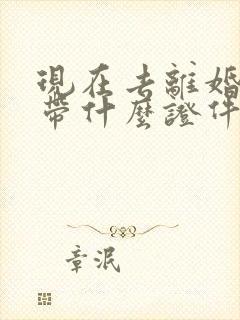 現在去離婚
帶什麼證件
章泯